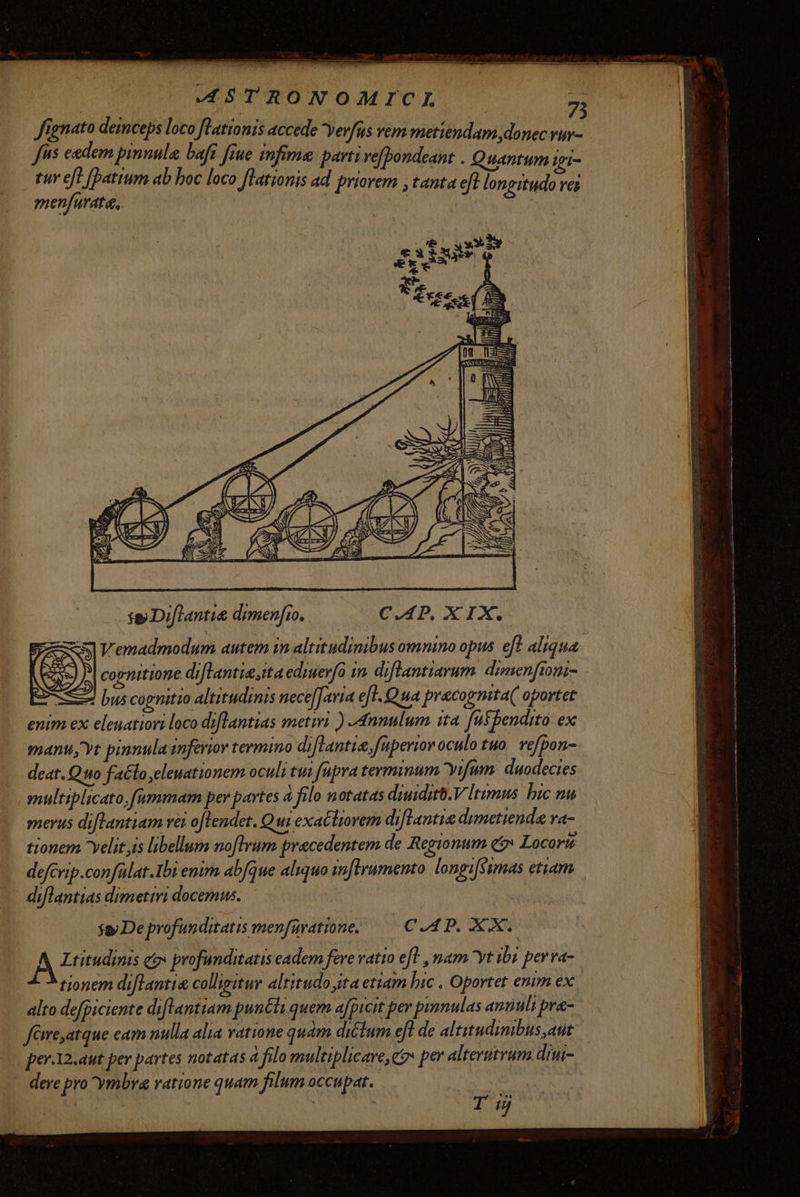 ASTRONOMICI. 73
ſignato deinceps loco ſtationis accede verſus rem metiendam, donec rur-
ſus eædem pinnulæ baſi ſiue infimæ parti reſpondeant. Quantum igi-
tur eſt ſpatium ab hoc loco ſtationis ad priorem, tanta eſt longitudo rei
menſuratæ.
Diſtantiæ dimenſio. CAP. XIX.
Vemadmodum autem in altitudinibus omnino opus eſt aliqua
cognitione diſtantiæ, ita ediuerſo in diſtantiarum dimenſioni-
bus cognitio altitudinis neceſſaria eſt. Qua præcognita (oportet
enim ex eleuatiori loco diſtantias metiri) Annulum ita ſuſpendito ex
manu, vt pinnula inferior termino diſtantiæ, ſuperior oculo tuo reſpon-
deat. Quo facto, eleuationem oculi tui ſupra terminum viſum duodecies
multiplicato, ſummam per partes à filo notatas diuidito. Vltimus hic nu
merus diſtantiam rei oſtendet. Qui exactiorem diſtantiæ dimetiendæ ra-
tionem velit, is libellum noſtrum præcedentem de Regionum & Locorū
deſcrip. conſulat. Ibi enim abſque aliquo inſtrumento longiſsimas etiam
diſtantias dimetiri docemus.
De profunditatis menſuratione. CAP. XX.
ALtitudinis & profunditatis eadem fere ratio eſt, nam vt ibi per ra-
tionem diſtantiæ colligitur altitudo, ita etiam hic. Oportet enim ex
alto deſpiciente diſtantiam puncti quem aſpicit per pinnulas annuli præ-
ſcire, atque eam nulla alia ratione quàm dictum eſt de altitudinibus, aut
per. 12. aut per partes notatas à filo multiplicare, & per alterutrum diui-
dere pro vmbræ ratione quam filum occupat.
T iij